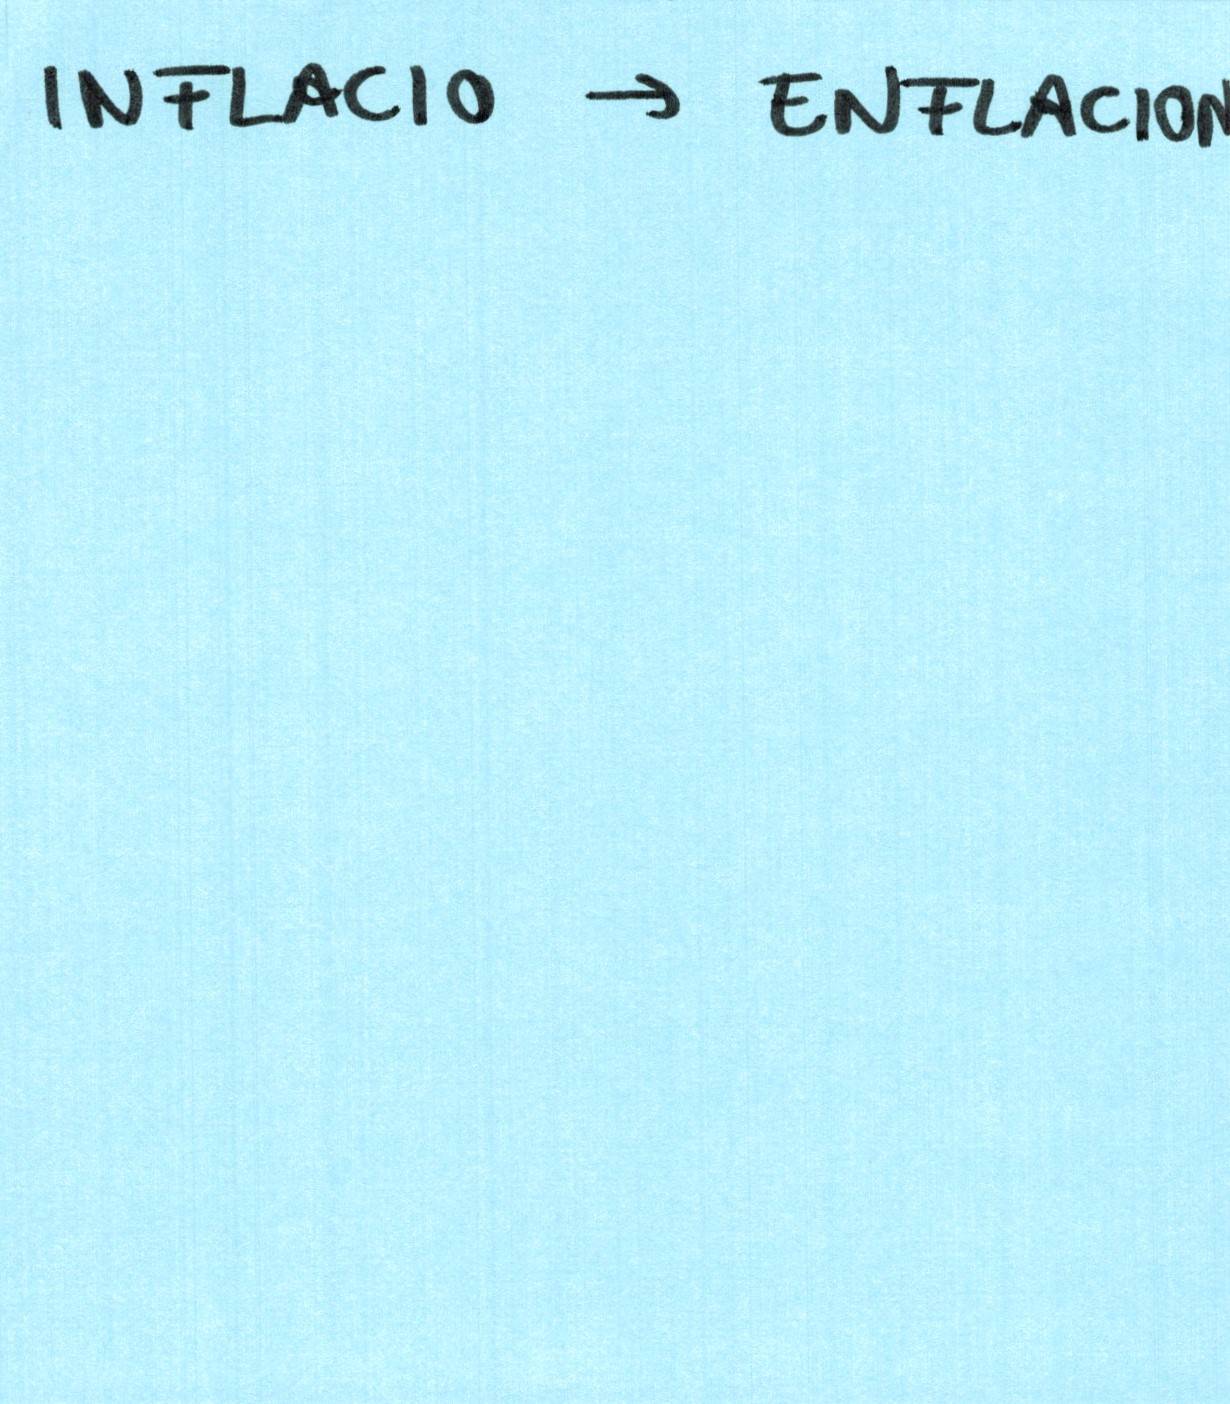 INFLACIO → ENFLACION